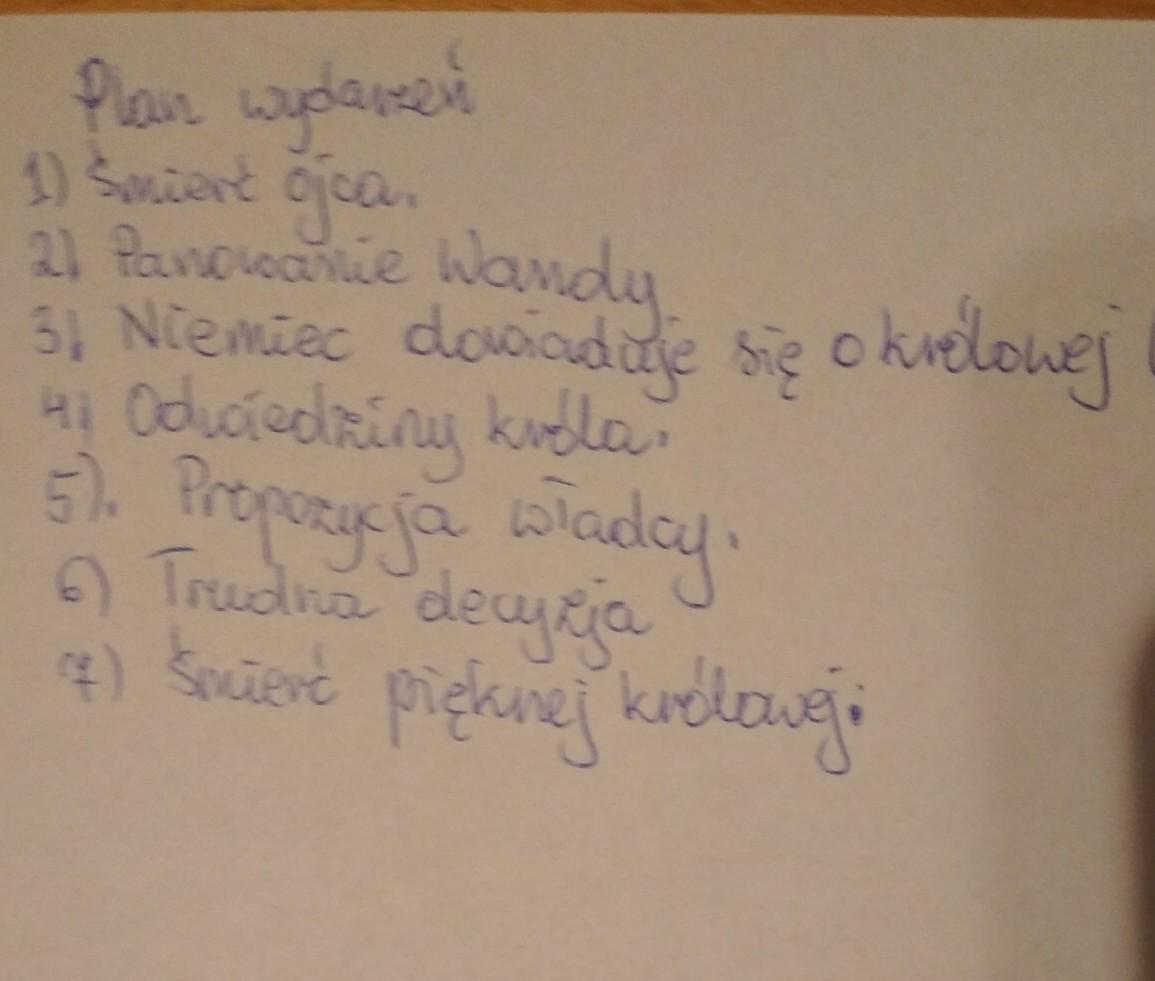 Plan wydarzeń
1) Śmierć ojca.
2) Panowanie Wandy
3) Niemiec dowiaduje się o królowej
4) Odwiedziny króla.
5). Propozycja władcy.
6) Trudna decyzja
7) Śmierć pięknej królowej.